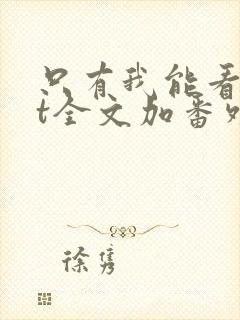 只有我能看
t全文加番外
徐隽